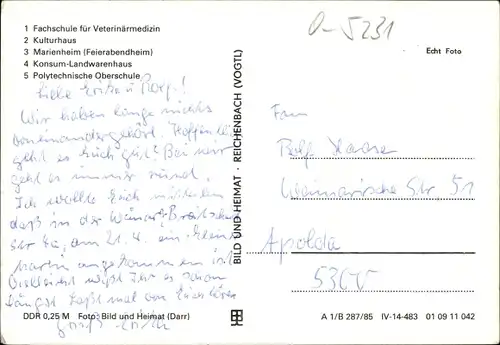 1 Fachschule für Veterinärmedizin
2 Kulturhaus
3 Marienheim (Feierabendheim)
4 Konsum-Landwarenhaus
5 Polytechnische Oberschule
Liebe Erika u. Rolf!
Wir haben lange nichts
voneinander gehört. Hoffentlich
geht es Euch gut? Bei mir
geht es immer rund.
Ich wollte Euch mitteilen
daß in der Weimar,
Str. am 21. 4. ein klein
Martin angekommen ist.
Vielleicht wißt Ihr es schon
längst. Laßt mal von Euch hören
DDR 0,25 M Foto: Bild und Heimat (Darr)
BILD UND HEIMAT · REICHENBACH (VOGTL)
0-5231
Echt Foto
Rolf
Weimarische Str. 51
Apolda
A 1/B 287/85 IV-14-483 01 09 11 042